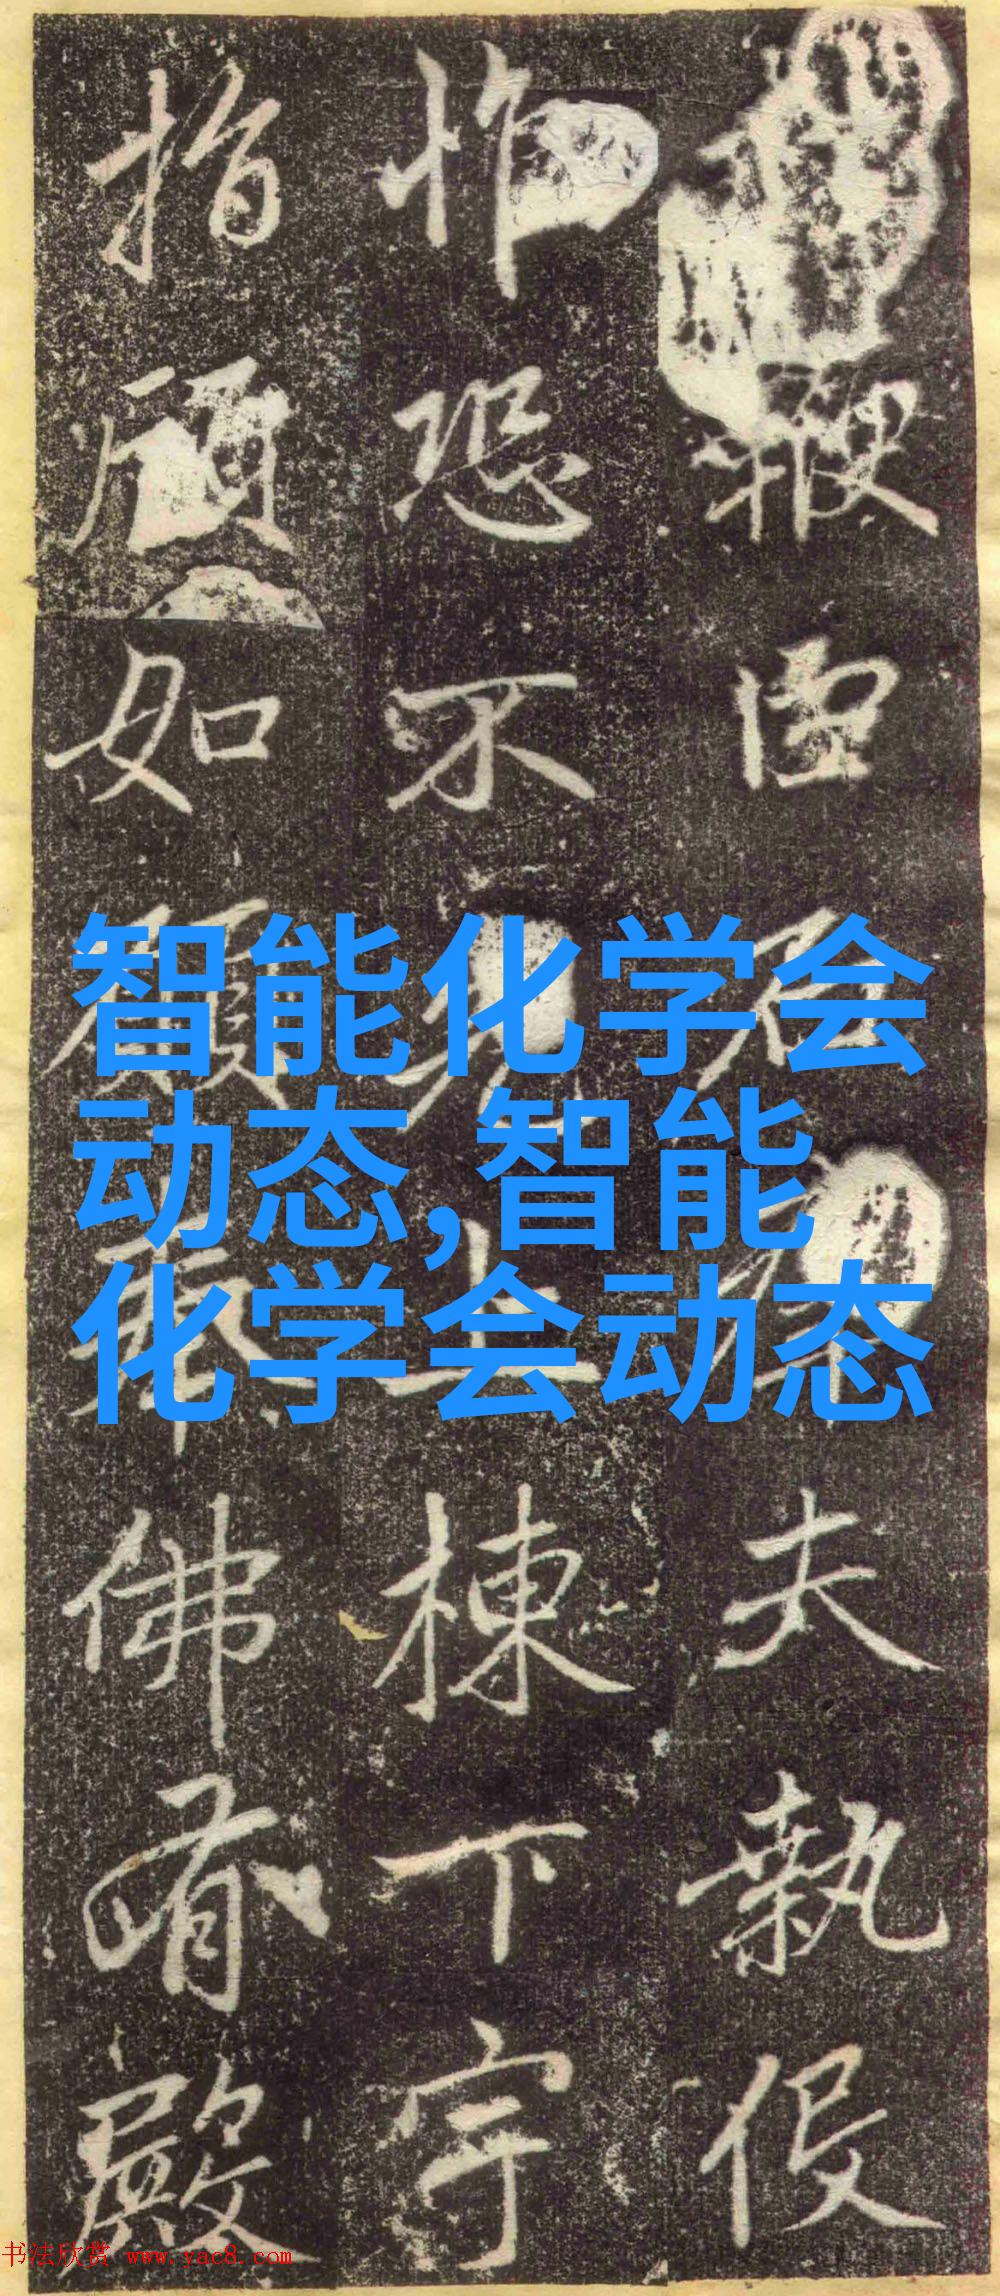 石夫執役
怍恐不見上棟下宇
指顧如佛殿
智能化学会
动态,智能
化学会动态
书法欣赏 www.yac8.com